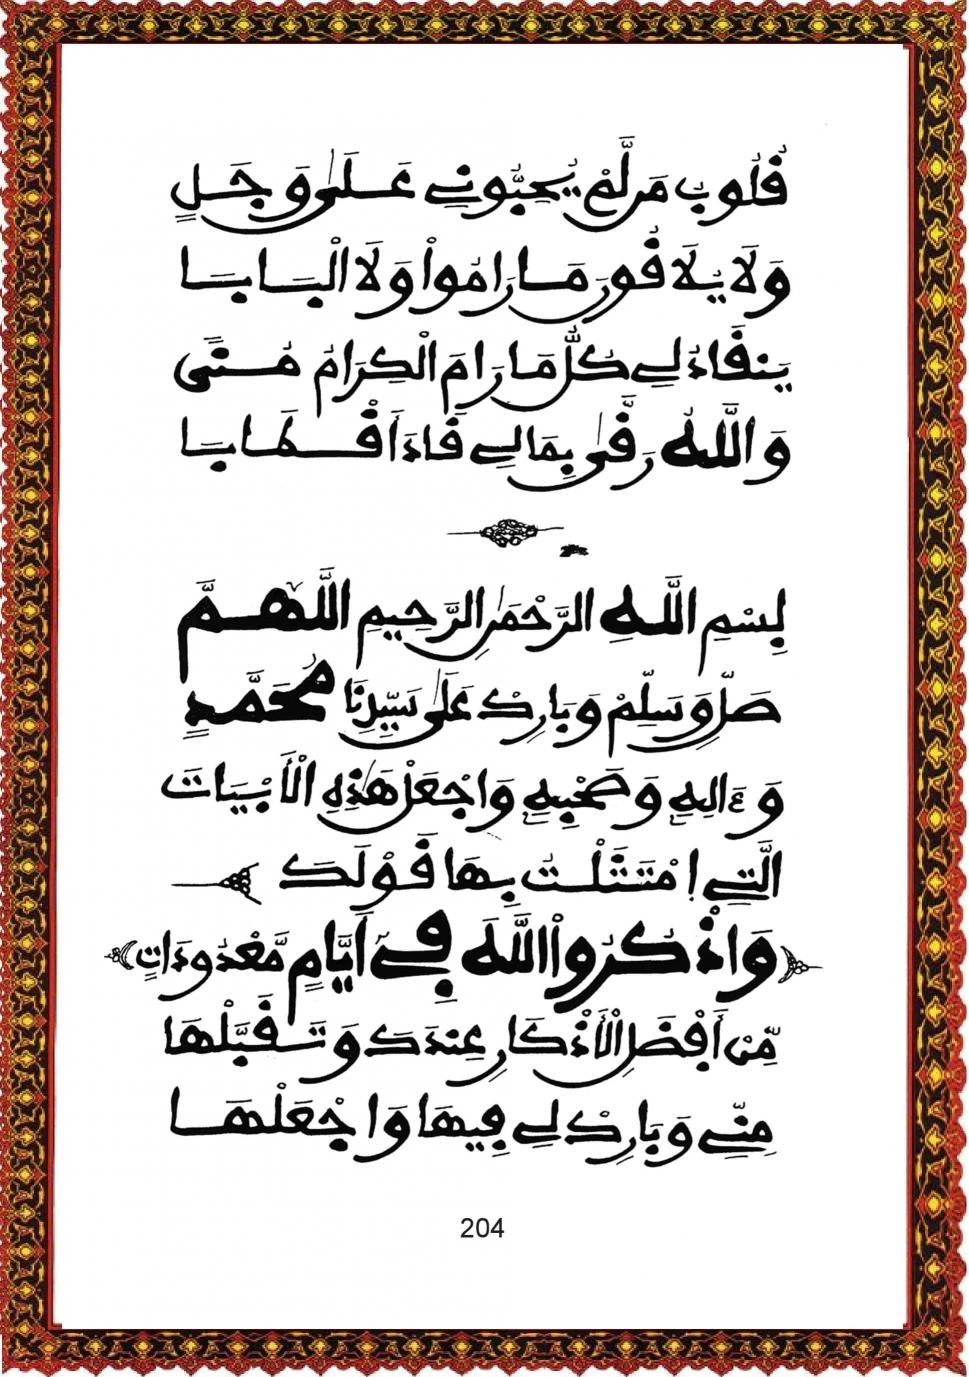 قُلُوبُ مَن لَّمْ يُحِبُّونِے عَـلَىٰ وَجَـلٍ
وَلَا يُلَاقُونَ مَـا رَامُواْ وَلَا الْبَـابَـا
يَنقَادُ لِے كُلُّ مَا رَامَ الْكِرَامُ مُـنًـى
وَاللَّهُ رَقَّىٰ بِمَا لِے قَادَ أَقْـطَـابَـا
بِسْمِ اللَّهِ الرَّحْمَٰنِ الرَّحِيمِ اللَّهُـمَّ
صَلِّ وَسَلِّمْ وَبَارِكْ عَلَىٰ سَيِّدِنَا مُحَمَّدٍ
وَءَالِهِ وَصَحْبِهِ وَاجْعَلْ هَٰذِهِ الْأَبْيَاتَ
الَّتِے امْتَثَلْـتُ بِـهَا قَـوْلَكَ
وَاذْكُرُواْ اللَّهَ فِے أَيَّامٍ مَّعْدُودَاتٍ
مِّنْ أَفْضَلِ الْأَذْكَارِ عِندَكَ وَتَـقَبَّلْهَا
مِنِّے وَبَارِكْ لِے فِيهَا وَاجْعَلْهَـا
204